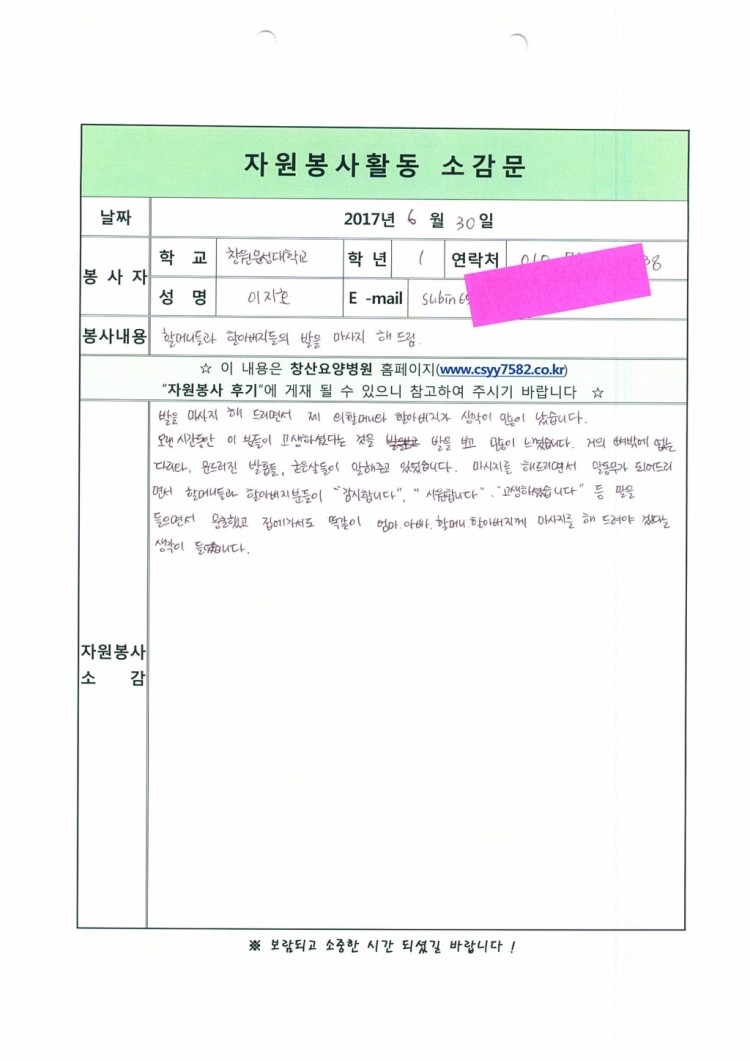 자원봉사활동 소감문
날짜 2017년 6 월 30일
봉 사 자 학 교 창원문성대학교 학 년 1 연락처 010 38
성 명 이지호 E -mail subin69
봉사내용 할머니들과 할아버지들의 발을 마사지 해 드림.
☆ 이 내용은 창산요양병원 홈페이지(www.csyy7582.co.kr)
"자원봉사 후기"에 게재 될 수 있으니 참고하여 주시기 바랍니다 ☆
발을 마사지 해 드리면서 제 외할머니와 할아버지가 생각이 많이 났습니다.
오랜시간동안 이 분들이 고생하셨다는 것을 발을 보고 많이 느꼈습니다. 거의 뼈밖에 없는
다리와, 문드러진 발톱들, 굳은살들이 말해주고 있었습니다. 마사지를 해드리면서 말동무가 되어드리
면서 할머니들과 할아버지분들이 "감사합니다", "시원합니다". "고생하셨습니다" 등 말을
들으면서 뭉클했고 집에가서도 똑같이 엄마.아빠.할머니.할아버지께 마사지를 해 드려야 겠다는
생각이 들었습니다.
자원봉사
소 감
※ 보람되고 소중한 시간 되셨길 바랍니다 !